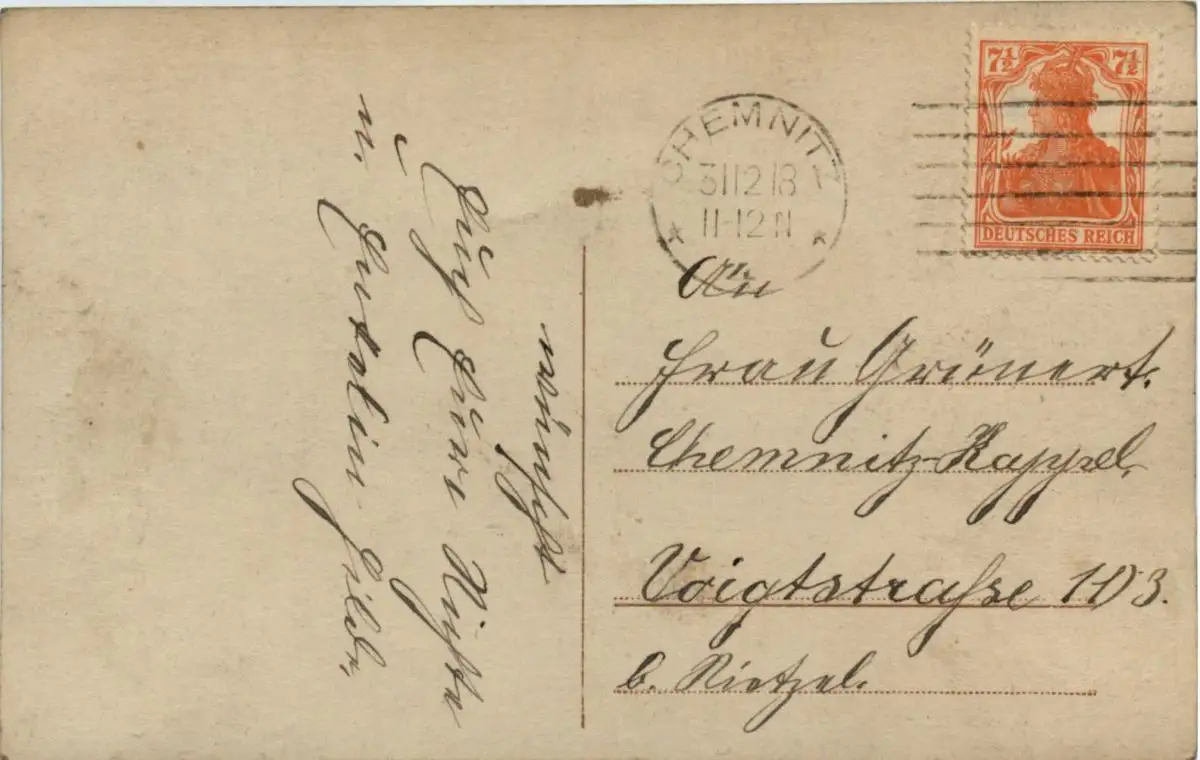 wünscht
Euch Eure Nichte
u. Hilde.
CHEMNITZ
31 12 18
11-12 N
7½ 7½
DEUTSCHES REICH
An
Frau Grünert.
Chemnitz-Kappel.
Voigtstraße 103.
b. Rietzel.